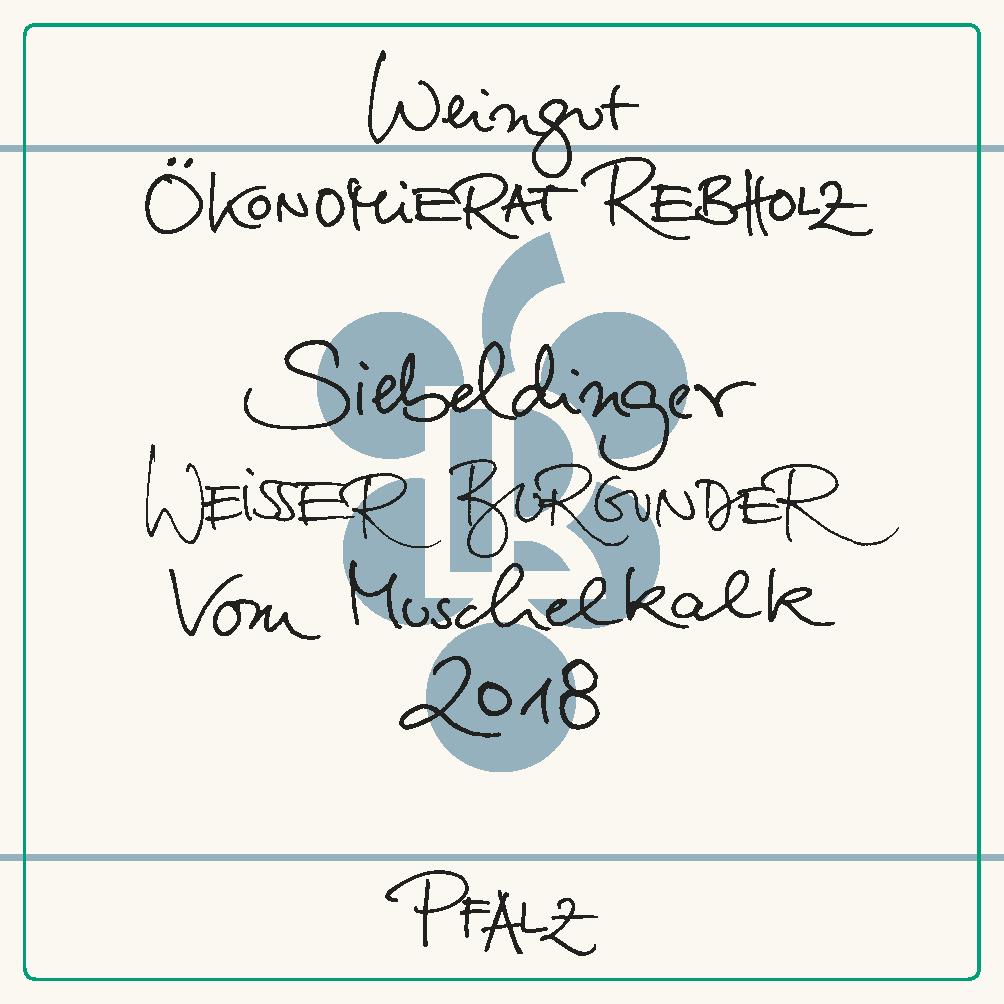 Weingut
ÖKONOMiERAT REBHOLZ
Siebeldinger
WEiSSER BURGUNDER
Vom Muschelkalk
2018
PFALZ